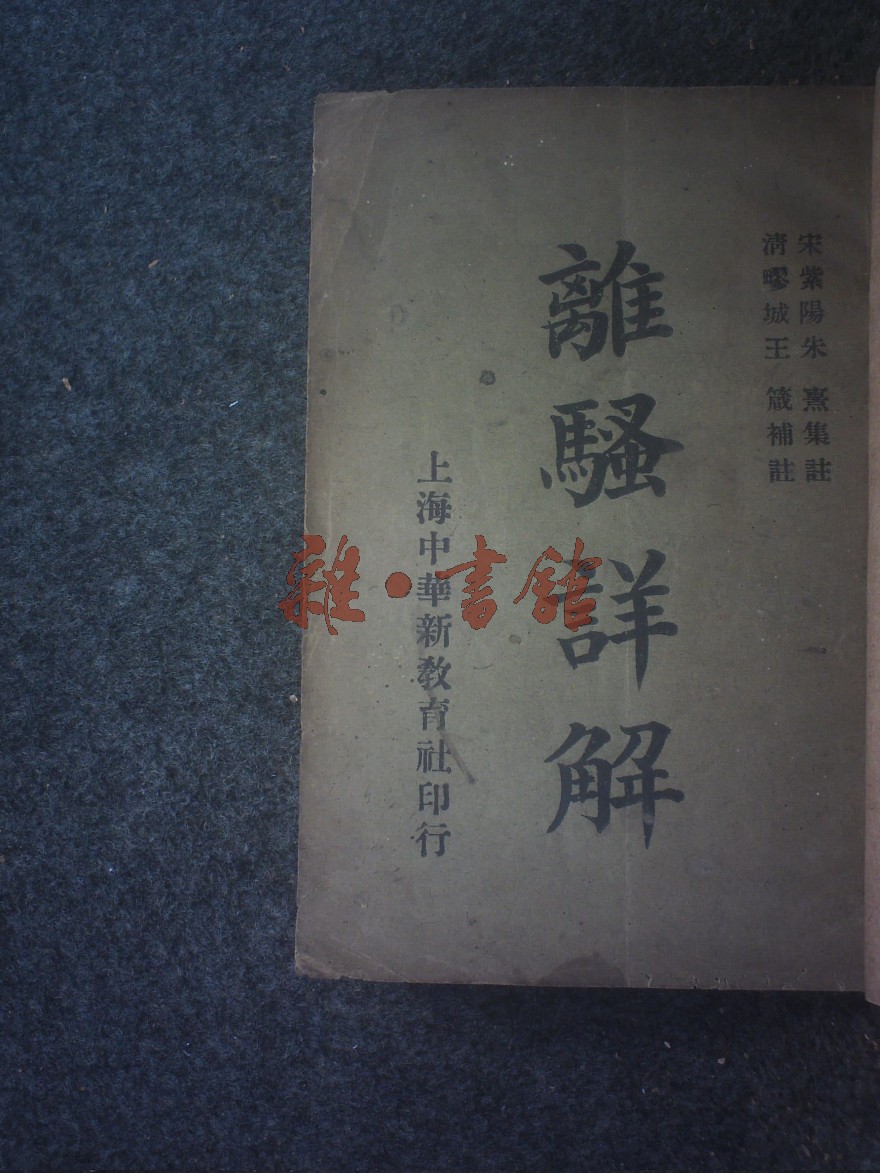 宋紫陽朱熹集註
清疁城王箴補註
離騷詳解
上海中華新教育社印行
雜·書館